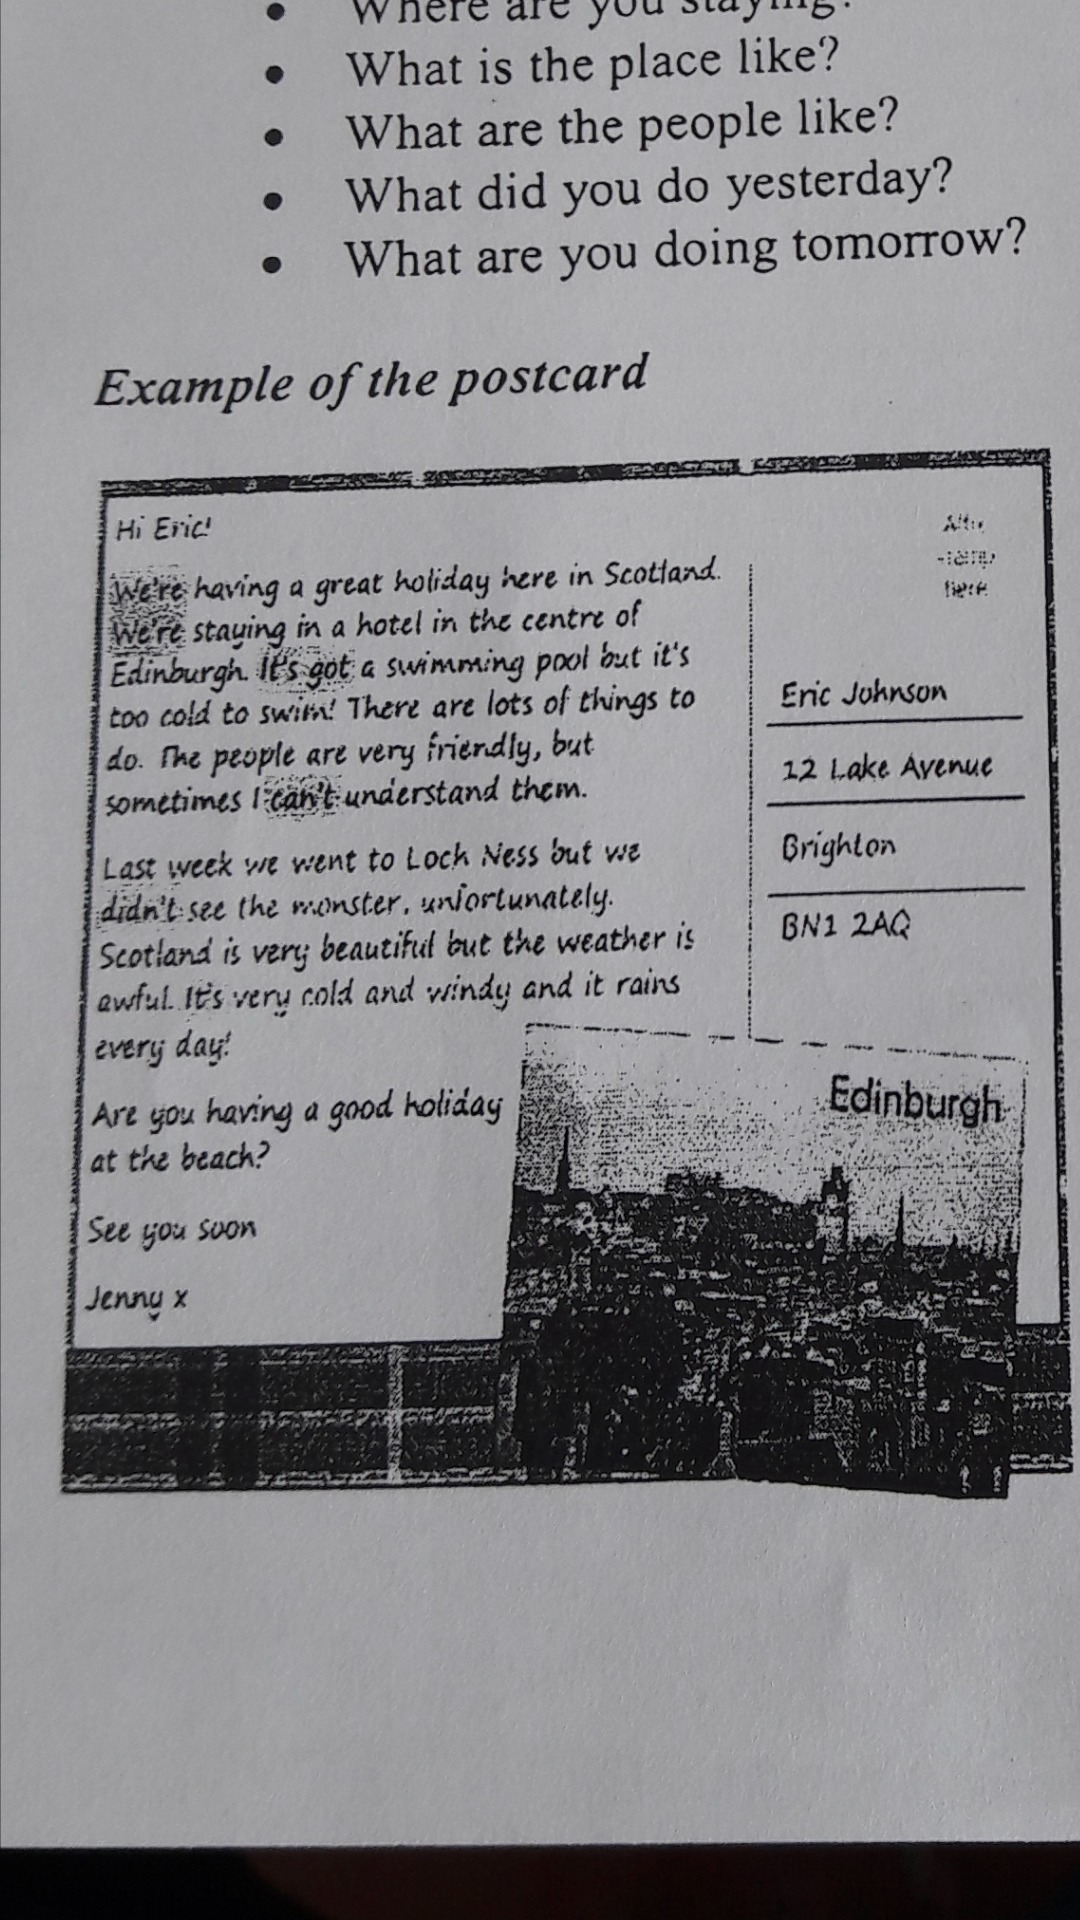 Where are you staying?
What is the place like?
What are the people like?
What did you do yesterday?
What are you doing tomorrow?
Example of the postcard
Hi Eric!
We're having a great holiday here in Scotland.
We're staying in a hotel in the centre of
Edinburgh. It's got a swimming pool but it's
too cold to swim! There are lots of things to
do. The people are very friendly, but
sometimes I can't understand them.
Last week we went to Loch Ness but we
didn't see the monster, unfortunately.
Scotland is very beautiful but the weather is
awful. It's very cold and windy and it rains
every day!
Are you having a good holiday
at the beach?
See you soon
Jenny x
here
Eric Johnson
12 Lake Avenue
Brighton
BN1 2AQ
Edinburgh